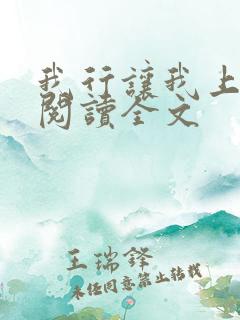 我行讓我上
閱讀全文
王瑞鋒
未经同意禁止转载